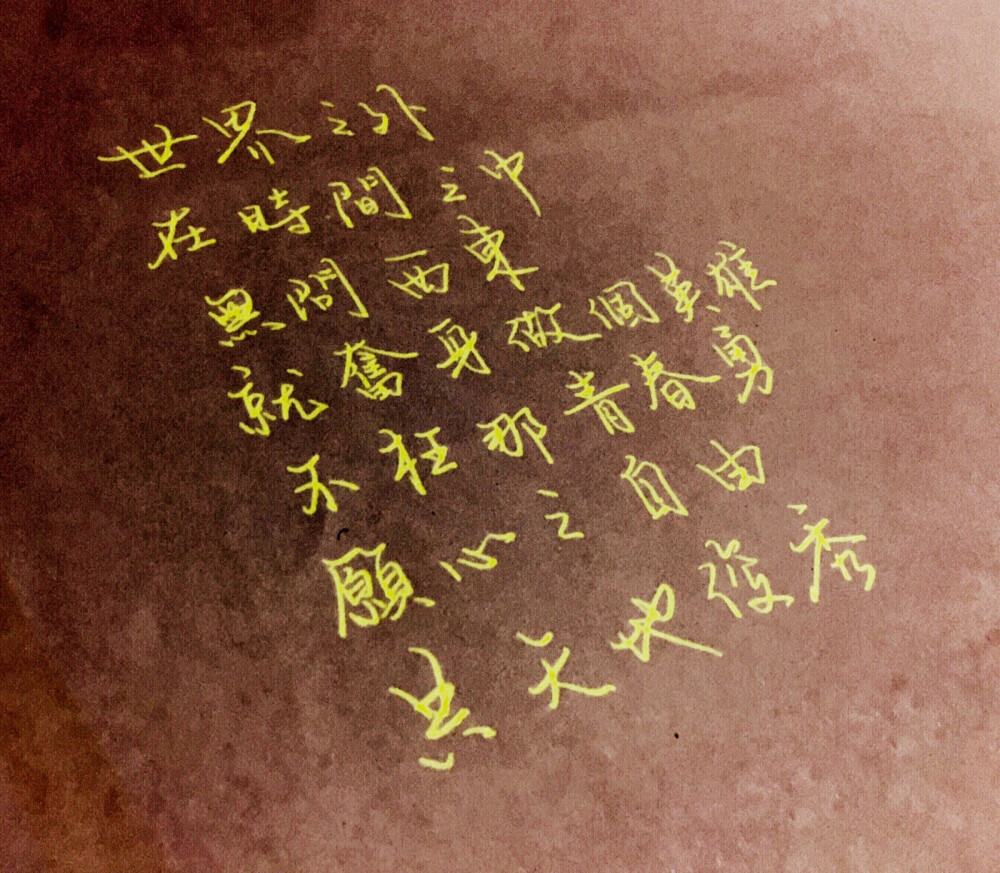 世界之外
在時間之中
無問西東
就奮身做個英雄
不枉那青春勇
願心之自由
共天地俊秀